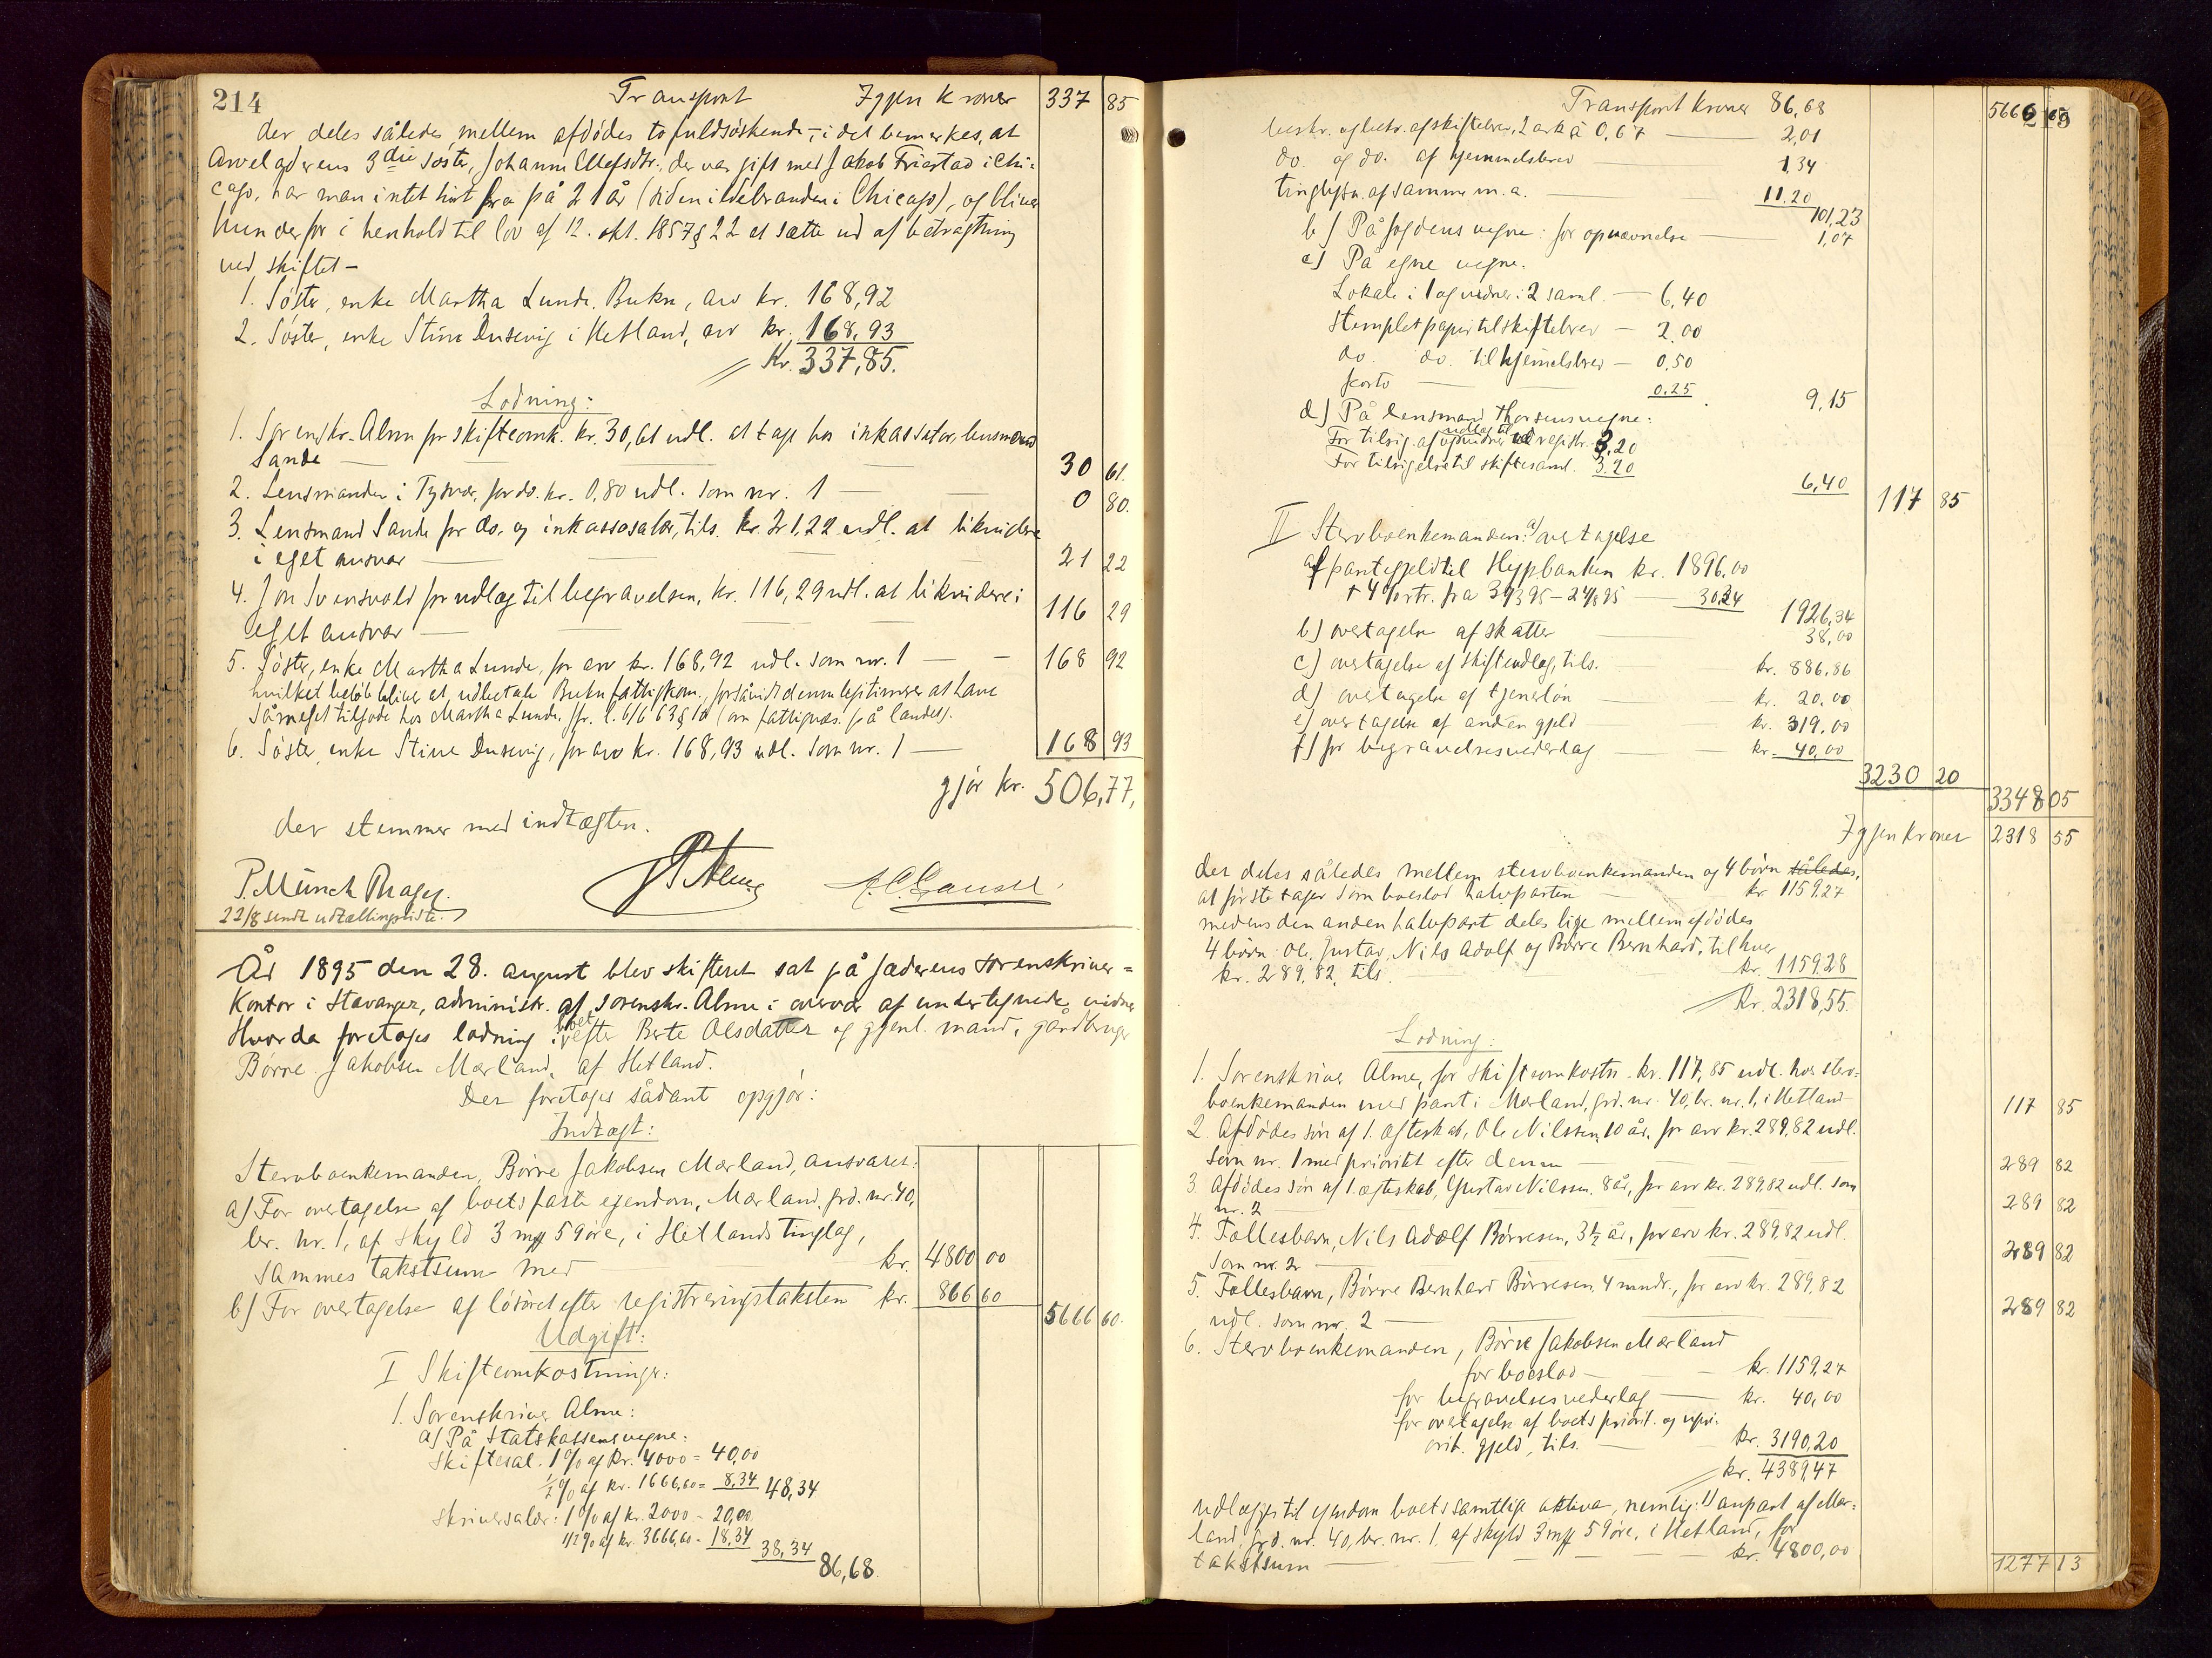 214
Transport Igjen kroner 337 85
der deles således mellem afdödes to fuldsöskende, - i det bemærkes, at
Arveladerens 3die söster, Johanne Olefsdtr., der var gift med Jakob Friestad i Chi-
cago, har man intet hört fra på 21 år (siden ildebranden i Chicago), og bliver
hun derfor i henhold til lov af 12. okt. 1857 § 22 at sætte ud af betragtning
ved skiftet -
1. Söster, enke Martha Lunde, Bukn, arv kr. 168,92
2. Söster, enke Stine Dusevig i Hetland, arv kr. 168,93
Kr. 337,85.
Lodning:
1. Sorenskr. Alme for skifteomk. kr. 30,61 udl. at tage hos inkassator, lensmand
Sande 30 61.
2. Lensmanden i Tysvær, for do. kr. 0,80 udl. som nr. 1 0 80.
3. Lensmand Sande for do. og inkassosalær, tils. kr. 21,22 udl. at likvidere
i eget ansvar 21 22
4. Jon Svensvold for udlæg til begravelsen, kr. 116,29 udl. at likvidere i
eget ansvar 116 29
5. Söster, enke Martha Lunde, for arv kr. 168,92 udl. som nr. 1 168 92
hvilket belöb bliver at udbetale Bukn fattigkom., forsåvidt denne legitimerer at have
såmeget tilgode hos Martha Lunde, jfr. l. 6/6 63 § 10 (om fattigvæs. på landet).
6. Söster, enke Stine Dusevig, for arv kr. 168,93 udl. som nr. 1 168 93
gjör kr. 506,77,
der stemmer med indtægten.
P. Münch Prager.
22/8 sendt udtællingsliste.
År 1895 den 28. august blev skifteret sat på Jæderens sorenskriver=
kontor i Stavanger, administr. af sorenskr. Alme i overvær af undertegnede vidner
Hvorda foretoges lodning i boet efter Berte Olsdatter og gjenl. mand, gårdbruger
Börre Jakobsen Mærland, af Hetland.
Der foretoges sådant opgjör:
Indtægt:
Stervboenkemanden, Börre Jakobsen Mærland, ansvarer:
a) For overtagelse af boets faste ejendom, Mærland, grd. nr. 40,
br. nr. 1, af skyld 3 mk 59 öre, i Hetlands tinglag,
sammes takstsum med kr. 4800 00
b) For overtagelse af lösöret efter registreringstaksten kr. 866 60
5666 60.
Udgift:
I Skifteomkostninger:
1. Sorenskriver Alme:
a) På Statskassens vegne:
Skiftesal. 1% af kr. 4000 = 40,00
1/2% af kr. 1666,60 = 8,34 48,34
Skriversalær: 1% af kr. 2000 = 20,00
1/2% af kr. 3666,60 = 18,34
38,34 86,68.
Transport kroner 86,68 5666 60
215
beskr. og bekr. af skiftebrev, 2 ark à 0,67 2,01
do. og do. af hjemmelsbrev 1,34
tinglysn. af samme m.a. 11,20
101,23
b) På fogdens vegne: for opnævnelse 1,07
c) På egne vegne.
Lokale i 1 og vidner i 2 saml. 6,40
Stemplet papir til skiftebrev 2,00
do. do. til hjemmelsbrev 0,50
porto 0,25
9,15
d) På lensmand Thorsens vegne:
For tilsig. af og udlæg til vidner ved registr. 3,20
For tilsigelse til skiftesaml. 3,20
6,40 117 85
II Stervboenkemanden: a) overtagelse
af pantegjeld til Hypbanken kr. 1896,00
+ 4% rtr. fra 30/3 95 - 24/8 95 30,34
1926,34
b) overtagelse af skatter 38,00
c) overtagelse af skifteudlæg, tils. kr. 886,86
d) overtagelse af tjenerlön kr. 20,00
e) overtagelse af anden gjeld kr. 319,00
f) for begravelsesvederlag kr. 40,00
3230 20
3348 05
Igjen kroner 2318 55
der deles således mellem stervboenkemanden og 4 börn således,
at förste tager som boeslod halvparten kr. 1159,27
medens den anden halvpart deles lige mellem afdödes
4 börn: Ole, Gustav, Nils Adolf og Börre Bernhard, til hver
kr. 289,82, tils. kr. 1159,28
Kr. 2318,55.
Lodning:
1. Sorenskriver Alme, for skifteomkostn. kr. 117,85 udl. hos sterv-
boenkemanden med pant i Mærland, grd. nr. 40, br. nr. 1, i Hetland 117 85
2. Afdödes sön af 1. ægteskab, Ole Nilssen, 10 år, for arv kr. 289,82 udl.
som nr. 1 med prioritet efter denne 289 82
3. Afdödes sön af 1. ægteskab, Gustav Nilssen, 8 år, for arv kr. 289,82 udl. som
nr. 2 289 82
4. Fællesbarn, Nils Adolf Börresen, 3½ år, for arv kr. 289,82 udl.
som nr. 2 289 82
5. Fællesbarn, Börre Bernhard Börresen, 4 mndr., for arv kr. 289,82
udl. som nr. 2 289 82
6. Stervboenkemanden, Börre Jakobsen Mærland
for boeslod kr. 1159,27
for begravelsesvederlag kr. 40,00
for overtagelse af boets priorit. og upri-
orit. gjeld, tils. kr. 3190,20
kr. 4389,47
udlægges til ejendom boets samtlige aktiva, nemlig: 1) anpart af Mær-
land, grd. nr. 40, br. nr. 1, af skyld 3 mk 59 öre, i Hetland, for
takstsum kr. 4800,00
1277 13